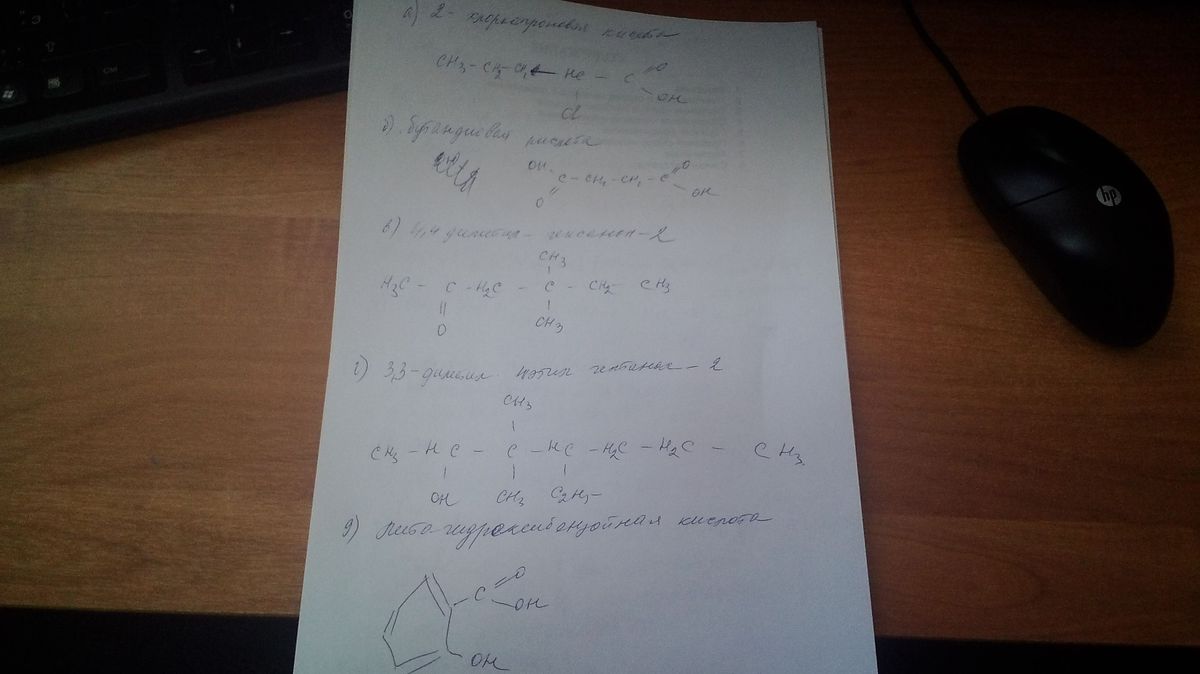 а) 2- хлоркапроновая кислота
CH3 - CH2 - CH2 - HC - C =O
OH
Cl
б) бутандиовая кислота
OH
C - CH2 - CH2 - C =O
O
OH
в) 4,4 диметил - гексанон - 2
CH3
H3C - C - H2C - C - CH2 - CH3
O
CH3
г) 3,3 - диметил 4этил гептанол - 2
CH3
CH3 - HC - C - HC - H2C - H2C - CH3
OH CH3 C2H5
д) гидроксибензойная кислота
C =O
OH
OH
Ctrl
hp